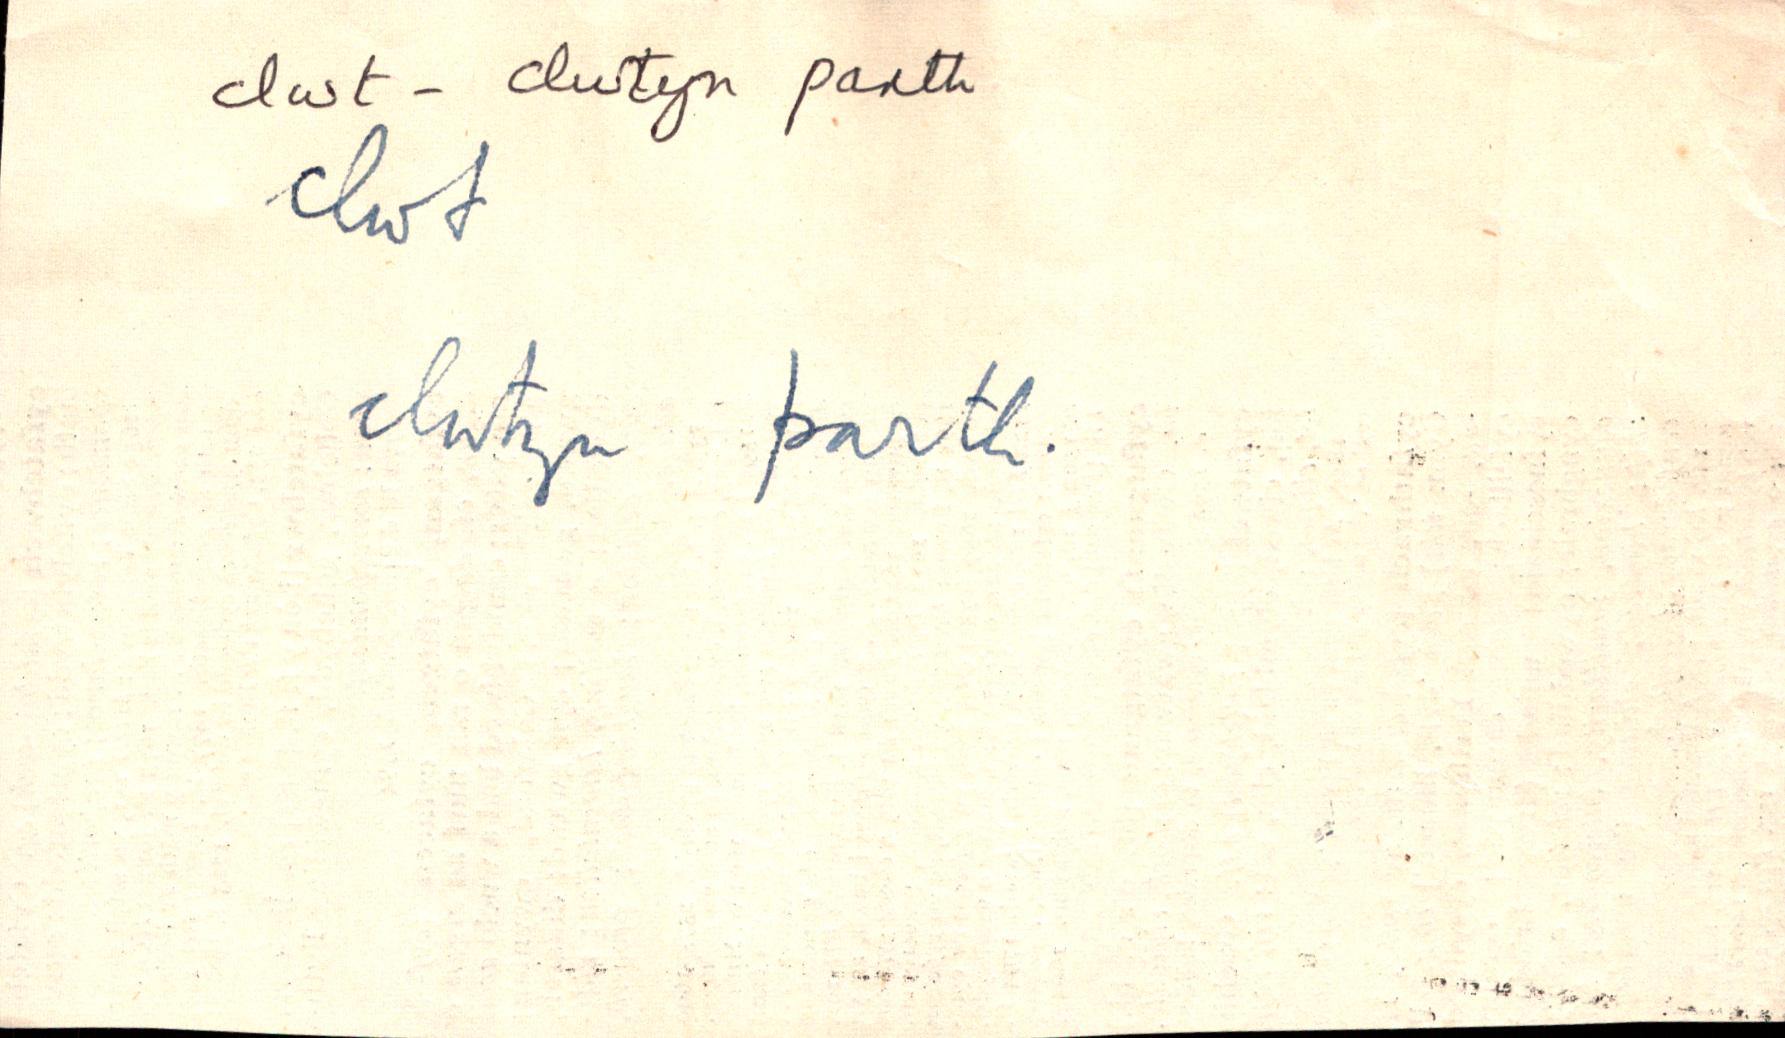 clwt - clwtyn parth
clwt
clwtyn parth.